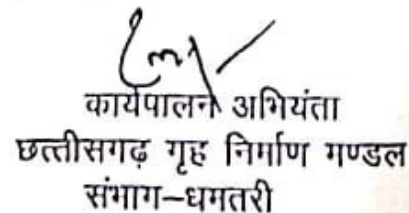 कार्यपालन अभियंता
छत्तीसगढ़ गृह निर्माण मण्डल
संभाग–धमतरी